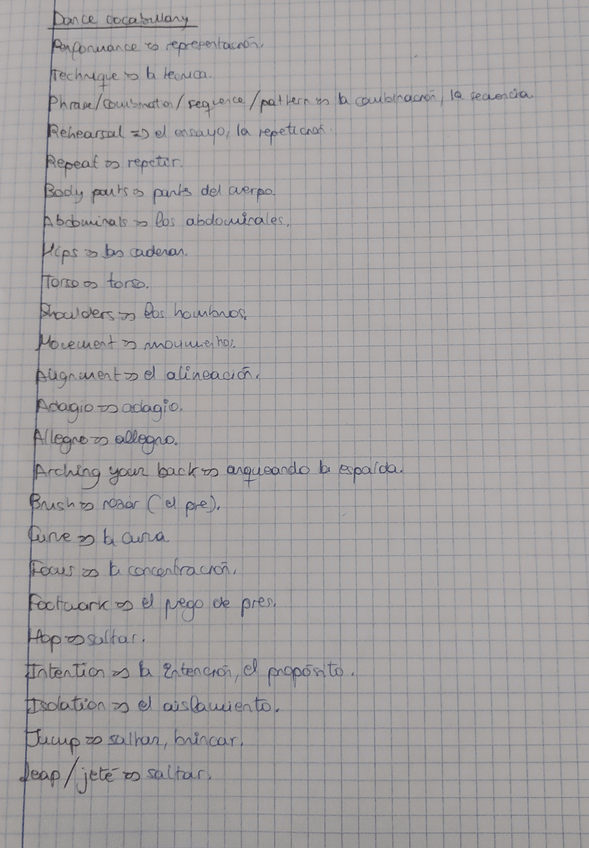 Dance vocabullary
Performance => representación.
Technique => la técnica.
Phrase/combination/sequence/pattern => la combinación, la secuencia
Rehearsal => el ensayo, la repetición.
Repeat => repetir.
Body parts => parts del cuerpo.
Abdominals => los abdominales.
Hips => las caderas.
Torso => torso.
Shoulders => los hombros.
Movement => movimiento.
Alignment => el alineación.
Adagio => adagio.
Allegro => allegro.
Arching your back => arqueando la espalda.
Brush => rozar (el pie).
Curve => la curva
Focus => la concentración.
Footwork => el juego de pies.
Hop => saltar.
Intention => la intención, el propósito.
Isolation => el aislamiento.
Jump => saltar, brincar.
Leap/jeté => saltar.